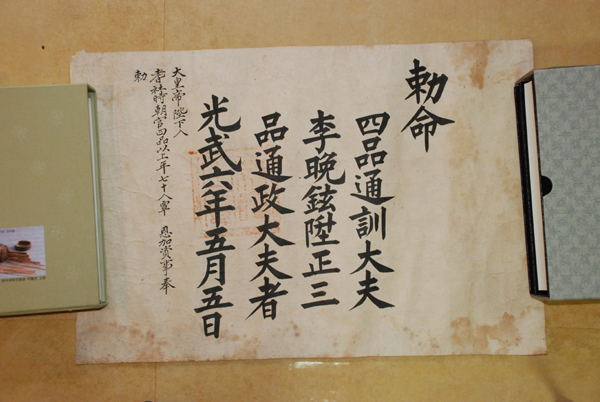 勅命
四品通訓大夫
李晩鉉陞正三
品通政大夫者
光武六年五月五日
大皇帝陛下入
耆社時朝官四品以上年七十人窠 恩加資事奉
勅